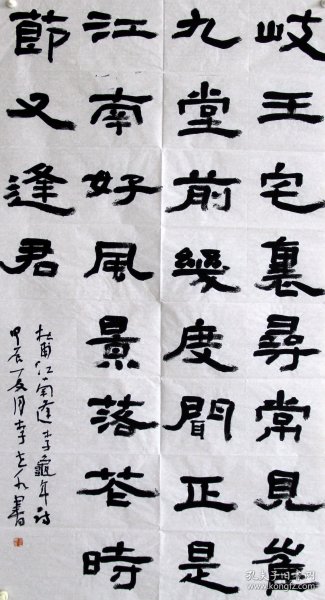 岐王宅裏尋常見崔
九堂前幾度聞正是
江南好風景落花時
節又逢君
杜甫江南逢李龜年詩
甲辰夏月李書
孔夫子旧书网